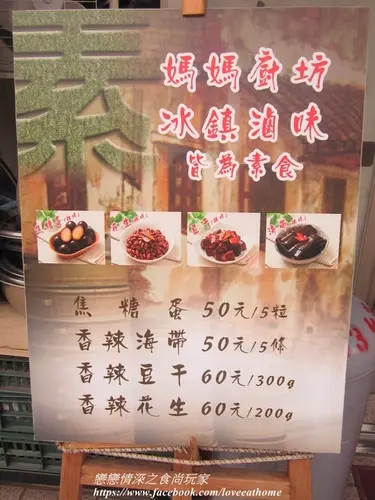 素
媽媽廚坊
冰鎮滷味
皆為素食
焦糖蛋 50元/5粒
香辣海帶 50元/5條
香辣豆干 60元/300g
香辣花生 60元/200g
戀戀情深之食尚玩家
https://www.facebook.com/loveeathome